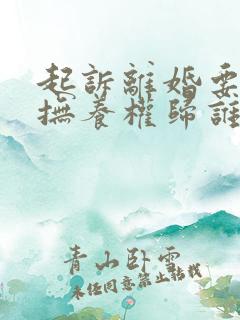 起訴離婚要
撫養權歸誰
青山臥雲
未经同意禁止轉載